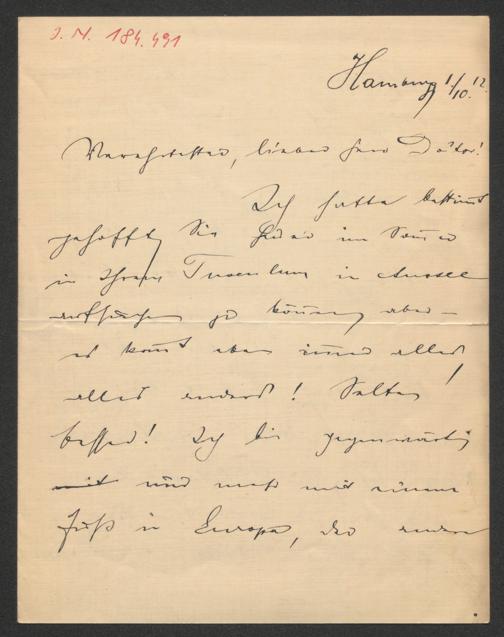 J. N. 184.491
Hamburg 1/10. 12.
Verehrtester, lieber Herr Doktor!
Ich hatte bestimt
gehofft, Sie heuer im Somer
in Ihrem Tusculum in Aussee
aufsuchen zu könen, aber –
es komt eben imer alles
alles anders! Selten
besser! Ich bin gegenwärtig
nur mehr mit einem
Fuß in Europa, der andere